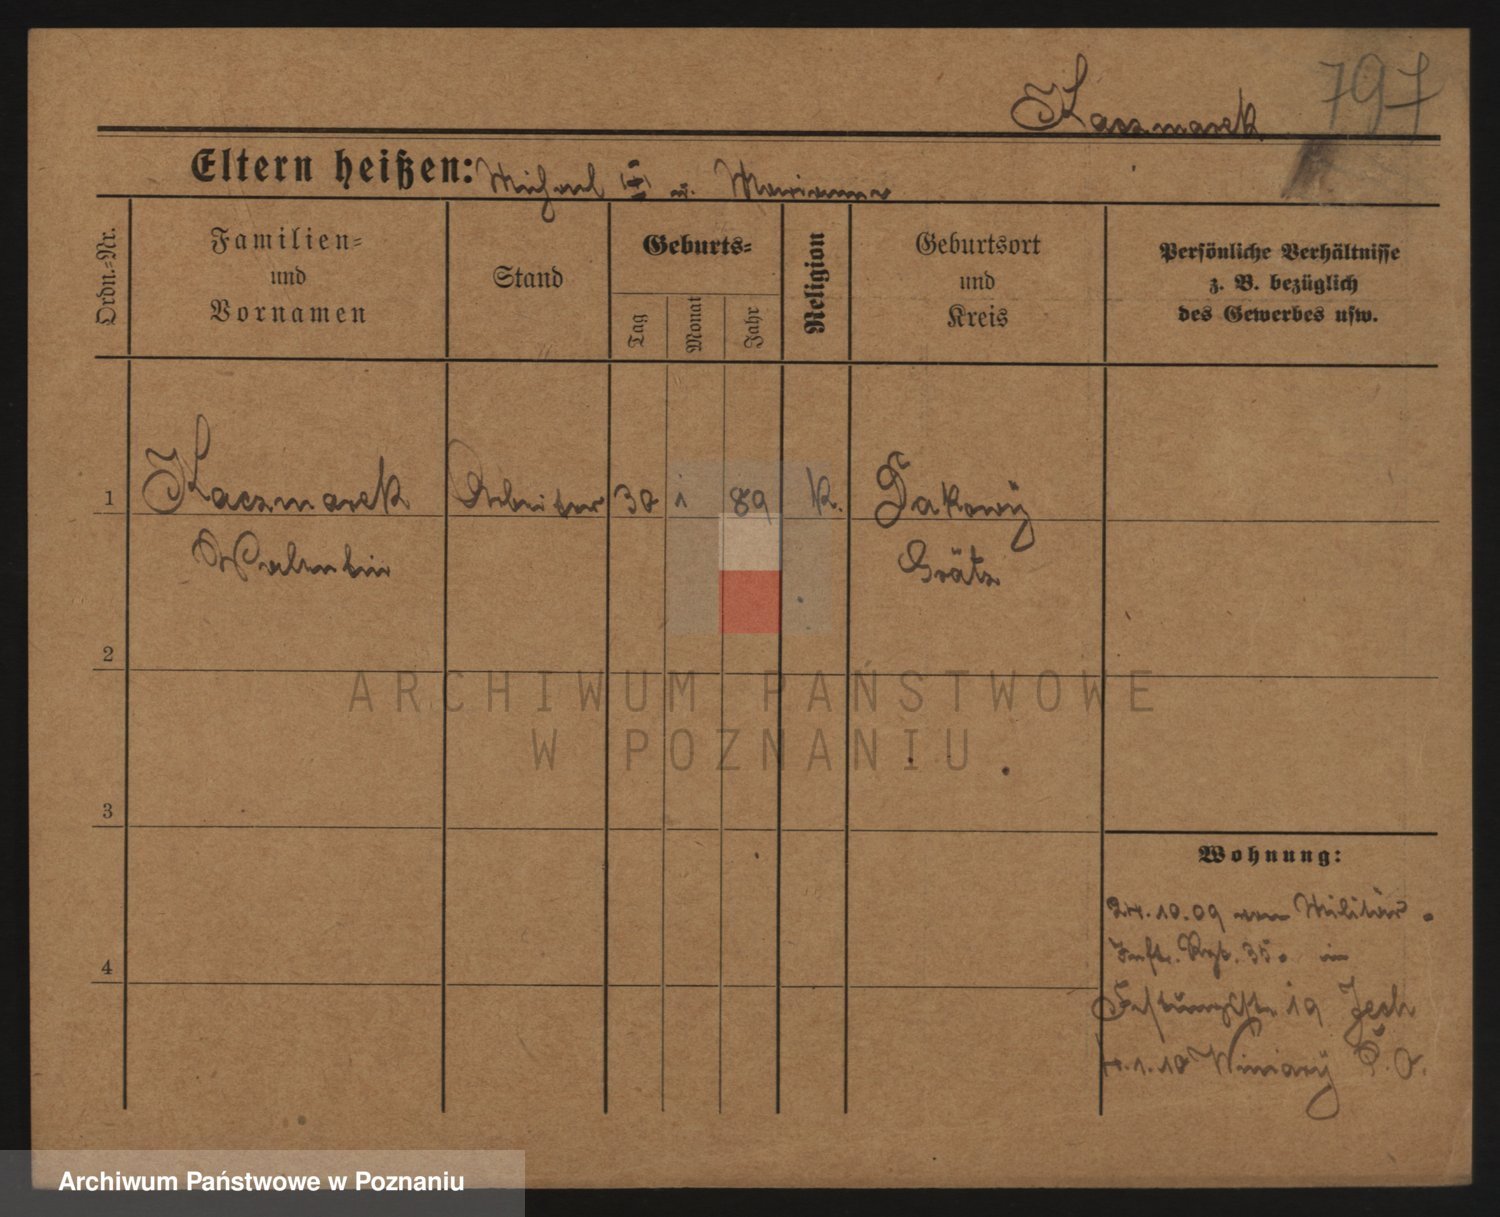 Kaczmarek 797
Eltern heißen: Michael (†) u. Marianna
Ordn.=Nr.
Familien=
und
Vornamen
Stand
Geburts=
Tag
Monat
Jahr
Religion
Geburtsort
und
Kreis
Persönliche Verhältnisse
z. B. bezüglich
des Gewerbes usw.
1 Kaczmarek Arbeiter 30 1 89 K.
Valentin
Grätz
2
3
4
ARCHIWUM PAŃSTWOWE
W POZNANIU
Wohnung:
24.10.09 vom Militär
Inft. Rgt. 35. in
Festungsstr. 19
4.1.10 Winiary P. O.
Archiwum Państwowe w Poznaniu